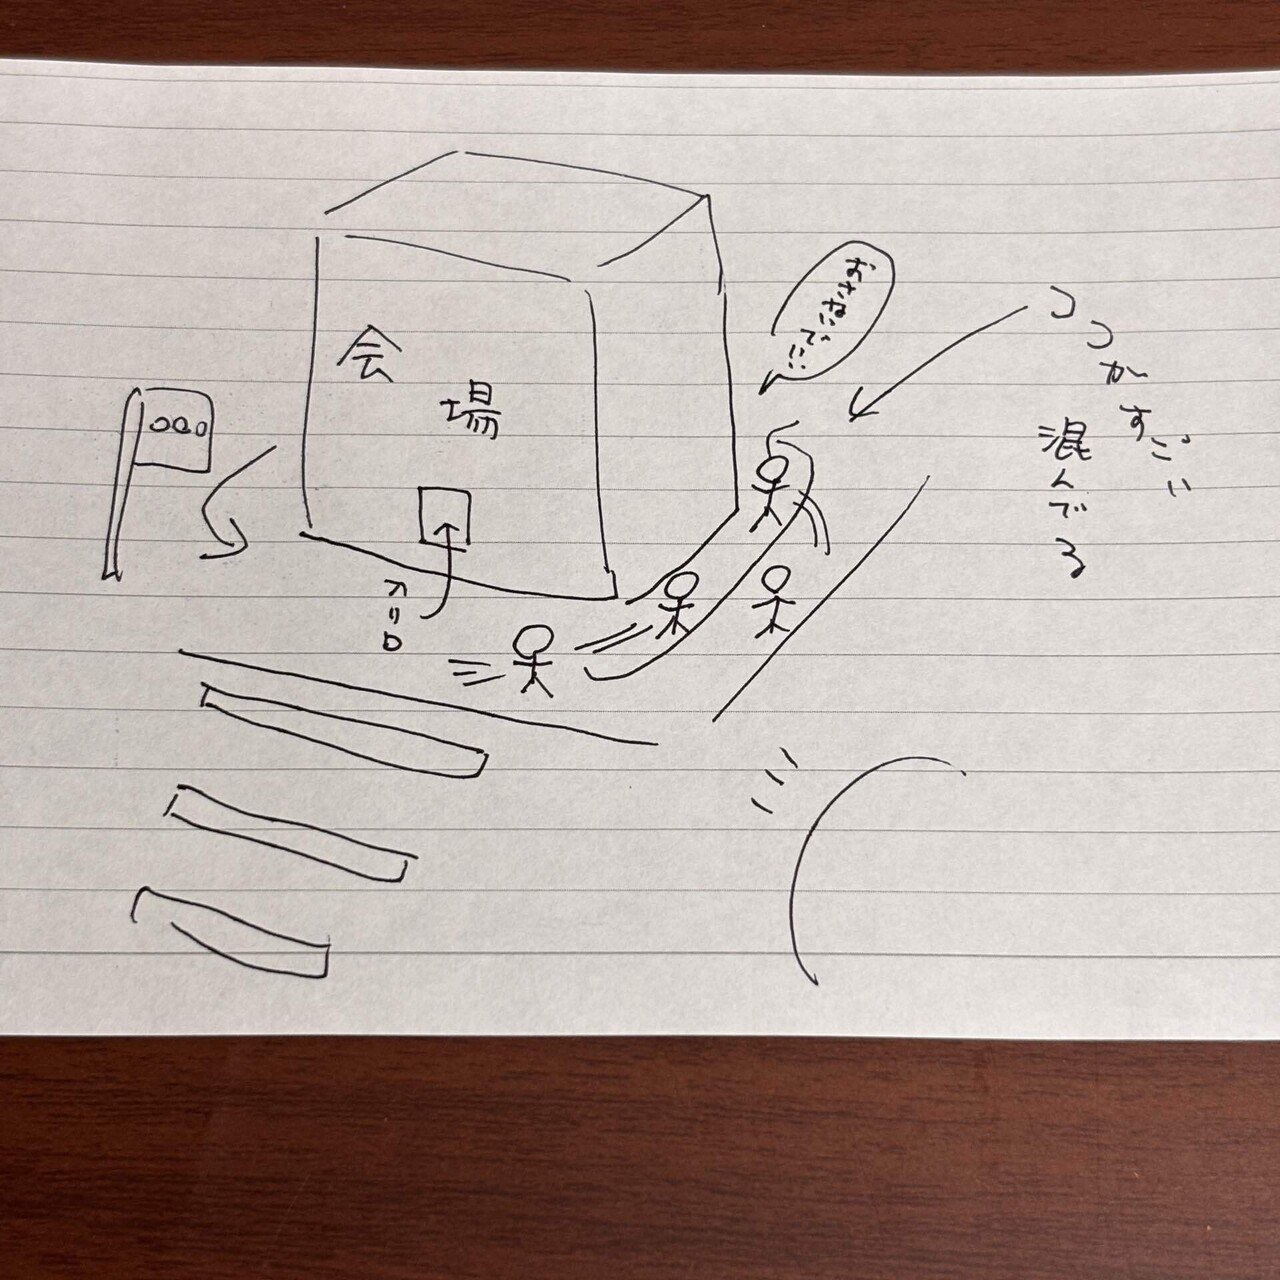 会場
入口
おさないでぃ!!
ココがすごい
混んでる